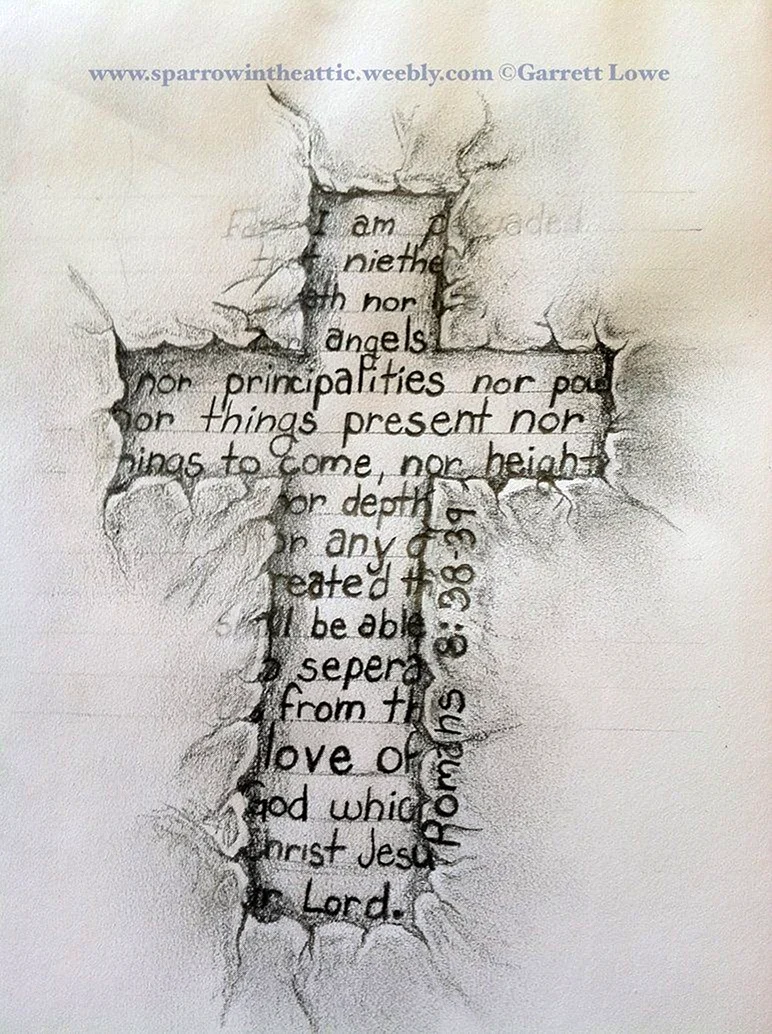 www.sparrowintheattic.weebly.com ©Garrett Lowe
For I am persuaded
that niethe
eth nor l
nor angels
nor principalities nor pow
nor things present nor
hings to come, nor height
nor depth
or any o
reated th
shall be able
o sepera
from th
love of
God which
Christ Jesu
ur Lord.
Romans 8:38-39